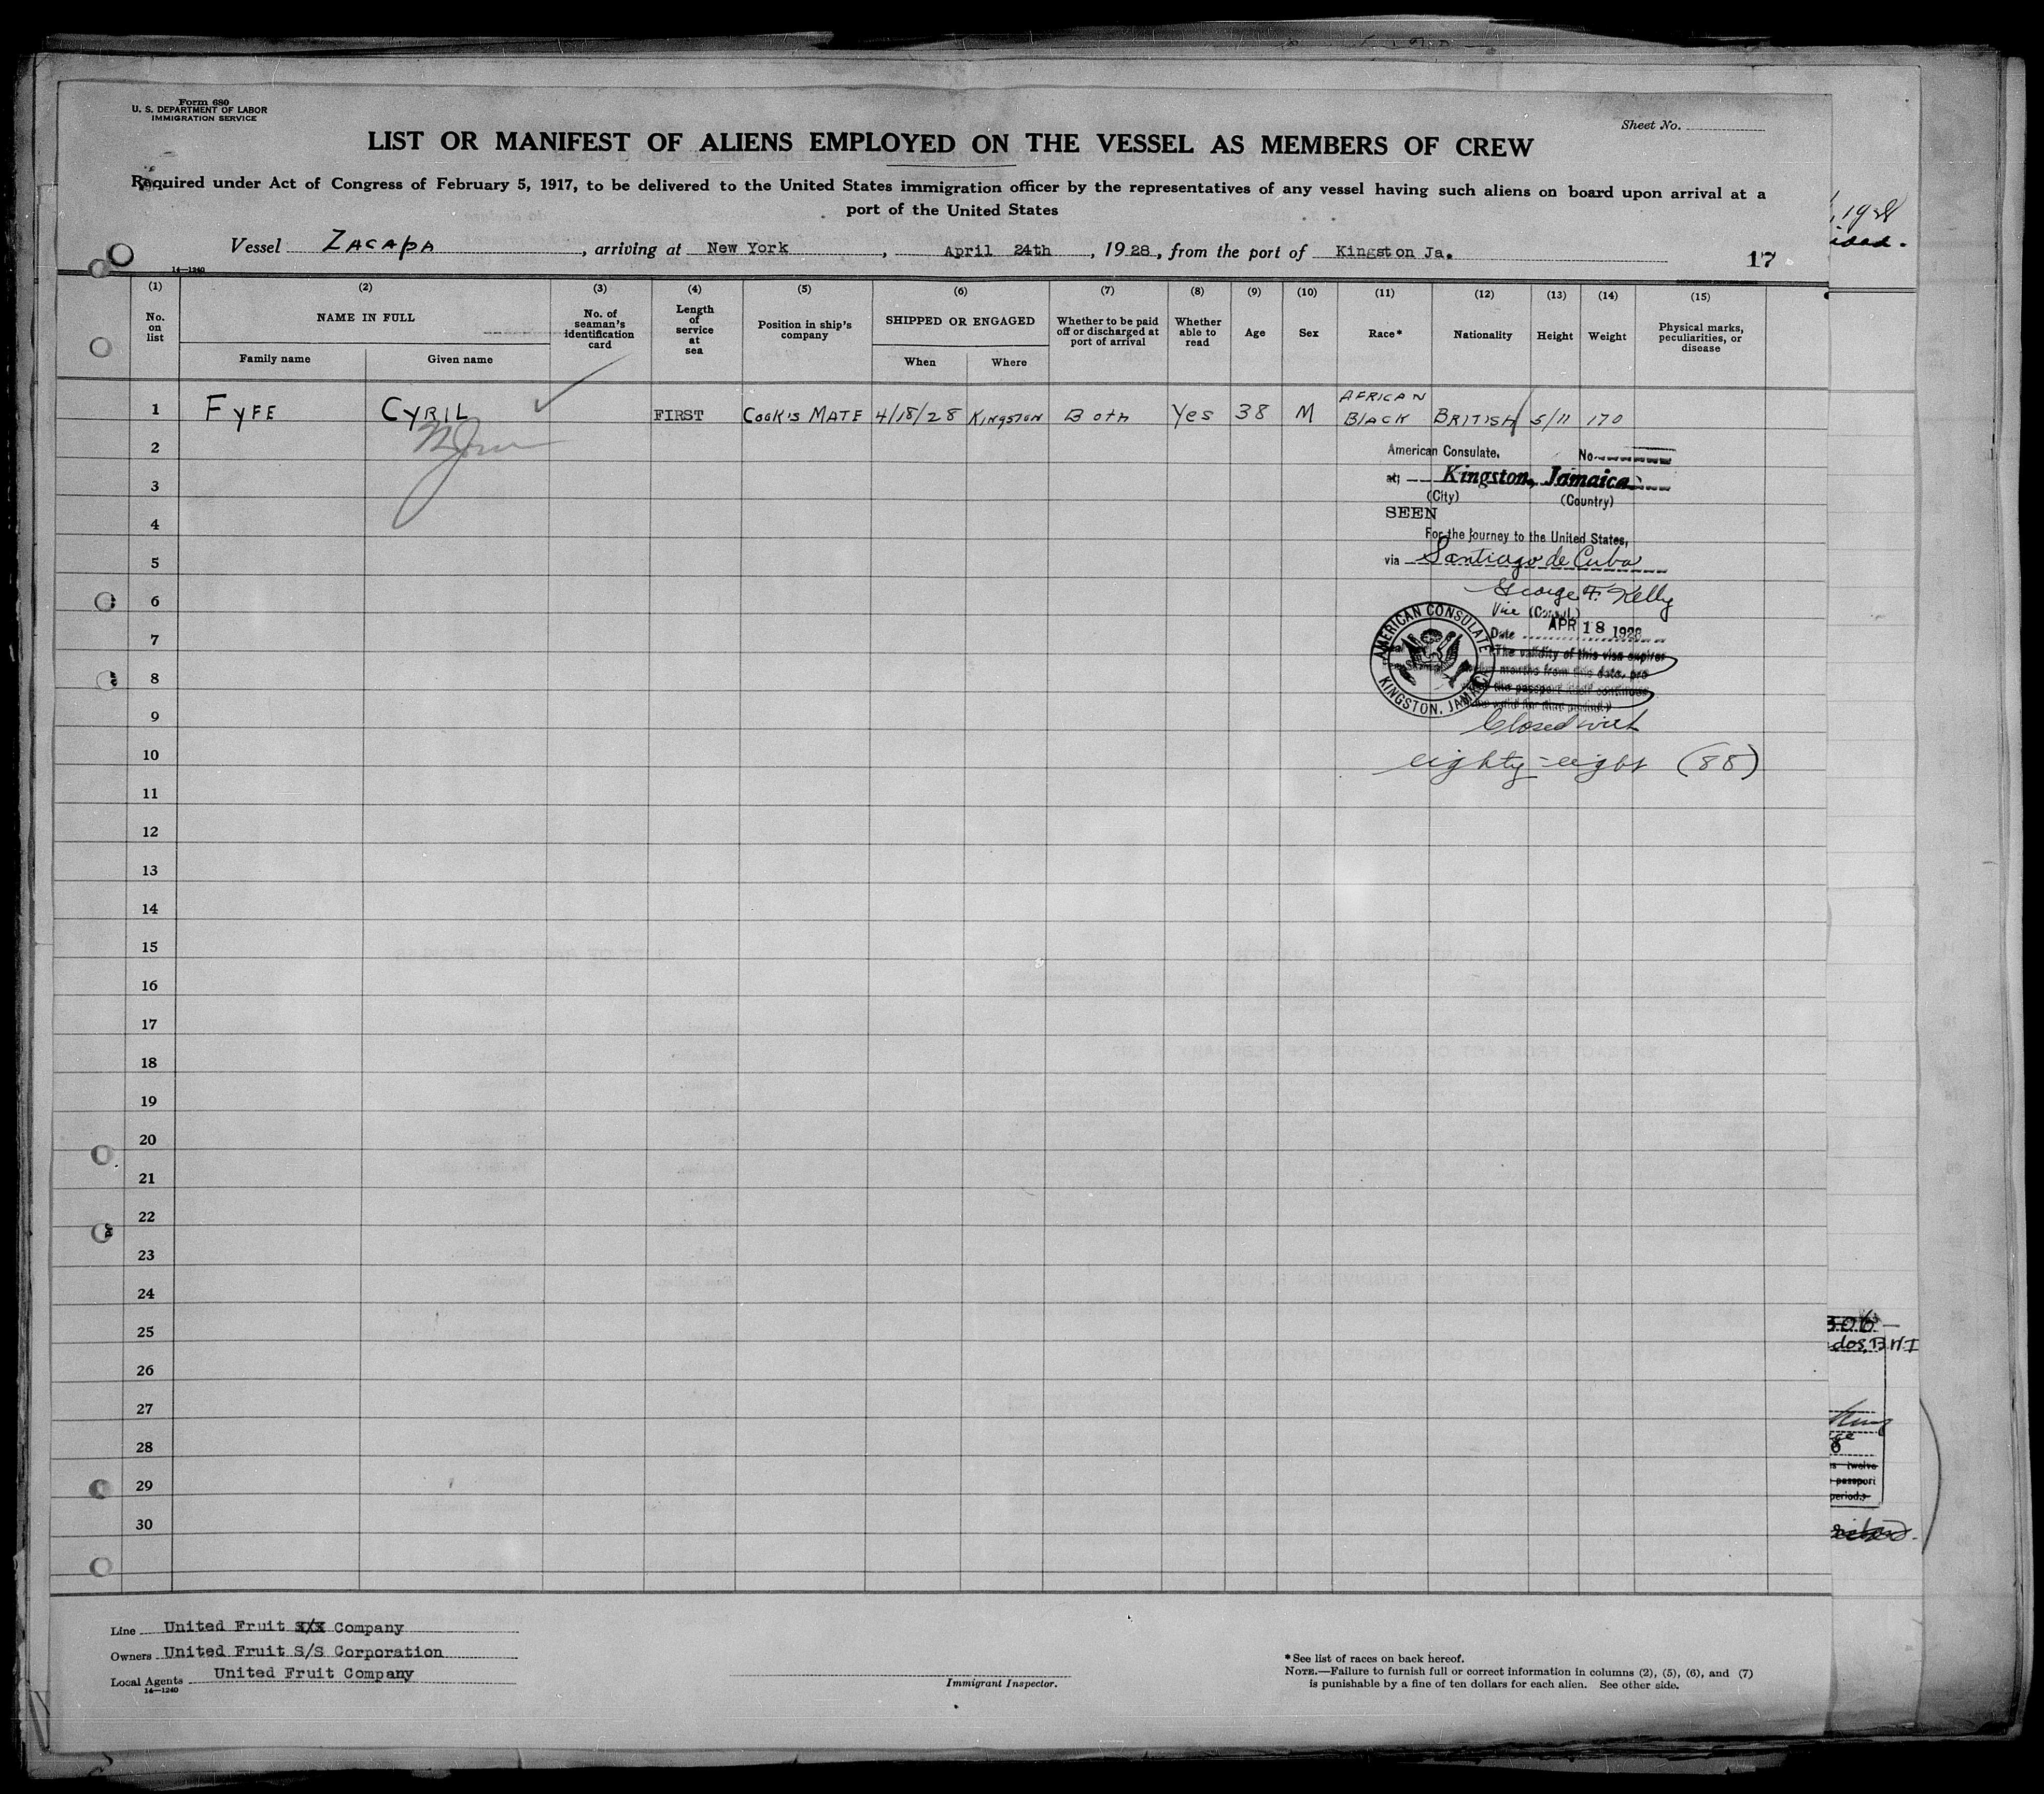 Form 680
U. S. DEPARTMENT OF LABOR
IMMIGRATION SERVICE
Sheet No.
LIST OR MANIFEST OF ALIENS EMPLOYED ON THE VESSEL AS MEMBERS OF CREW
Required under Act of Congress of February 5, 1917, to be delivered to the United States immigration officer by the representatives of any vessel having such aliens on board upon arrival at a
port of the United States
Vessel ZACAPA, arriving at New York, April 24th, 1928, from the port of Kingston Ja.
17
14—1240
(1) (2) (3) (4) (5) (6) (7) (8) (9) (10) (11) (12) (13) (14) (15)
No. on list
NAME IN FULL
Family name
Given name
No. of seaman's identification card
Length of service at sea
Position in ship's company
SHIPPED OR ENGAGED
When
Where
Whether to be paid off or discharged at port of arrival
Whether able to read
Age
Sex
Race*
Nationality
Height
Weight
Physical marks, peculiarities, or disease
1 FYFE CYRIL FIRST COOK'S MATE 4/18/28 KINGSTON Both Yes 38 M AFRICAN BLACK BRITISH 5/11 170
2
3
4
5
6
7
8
9
10
11
12
13
14
15
16
17
18
19
20
21
22
23
24
25
26
27
28
29
30
American Consulate, No.
at Kingston, Jamaica
(City) (Country)
SEEN
For the journey to the United States,
via Santiago de Cuba
George F. Kelly
Vice (Consul)
Date APR 18 1928
The validity of this visa expires
months from this date, pro
the passport itself continues
AMERICAN CONSULATE
KINGSTON, JAMAICA
Closed with
eighty-eight (88)
, 1928
dos, B.W.I
twelve
passport
period.)
Line United Fruit Company
Owners United Fruit S/S Corporation
Local Agents United Fruit Company
14—1240
Immigrant Inspector.
*See list of races on back hereof.
NOTE.—Failure to furnish full or correct information in columns (2), (5), (6), and (7)
is punishable by a fine of ten dollars for each alien. See other side.